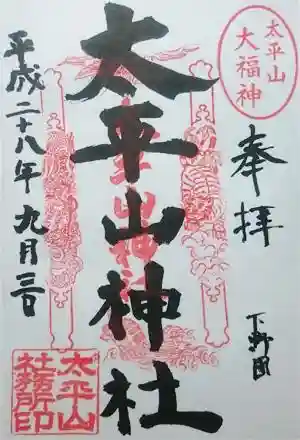 太平山
大福神
奉拝
下野国
太平山神社
平成二十八年九月三日
太平山
社務所印